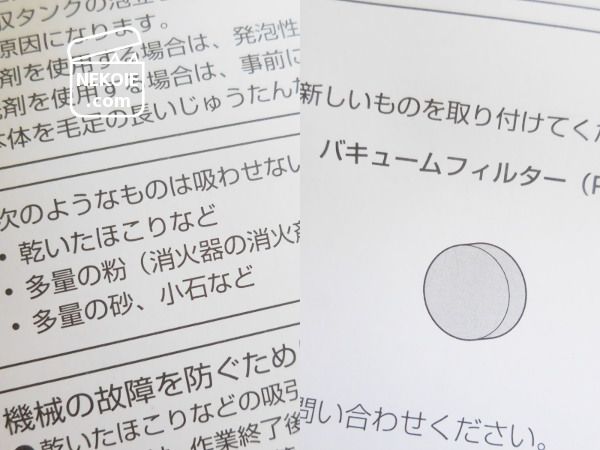 収タンクの泡立
原因になります。
剤を使用する場合は、発泡性
剤を使用する場合は、事前に
本体を毛足の長いじゅうたん
次のようなものは吸わせない
・乾いたほこりなど
・多量の粉（消火器の消火剤
・多量の砂、小石など
機械の故障を防ぐため
●乾いたほこりなどの吸引
作業終了後
NEKOIE
.com
新しいものを取り付けてくだ
バキュームフィルター（P
問い合わせください。